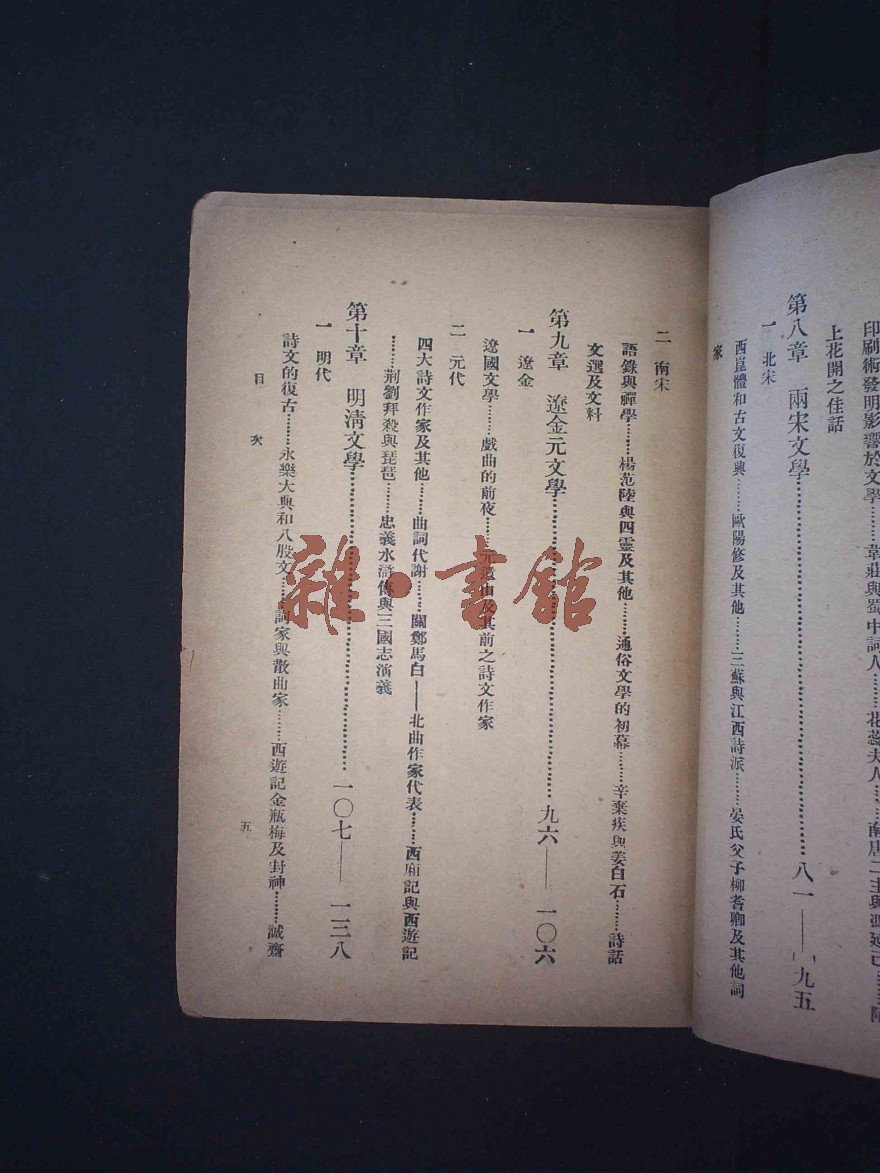 印刷術發明影響於文學……韋莊與蜀中詞人……花蕊夫人……南唐二主與馮延己……陸
上花開之佳話
第八章　兩宋文學……八一——九五
一　北宋
西崑體和古文復興……歐陽修及其他……三蘇與江西詩派……晏氏父子柳耆卿及其他詞
家
二　南宋
語錄與禪學……楊范陸與四靈及其他……通俗文學的初幕……辛棄疾與姜白石……詩話
文選及文料
第九章　遼金元文學……九六——一〇六
一　遼金
遼國文學……戲曲的前夜……元遺山及其前之詩文作家
二　元代
四大詩文作家及其他……曲詞代謝……關鄭馬白——北曲作家代表……西廂記與西遊記
……荆劉拜殺與琵琶……忠義水滸傳與三國志演義
第十章　明清文學……一〇七——一三八
一　明代
詩文的復古……永樂大典和八股文……詞家與散曲家……西遊記金瓶梅及封神……誠齋
目　次
五
雜·書館